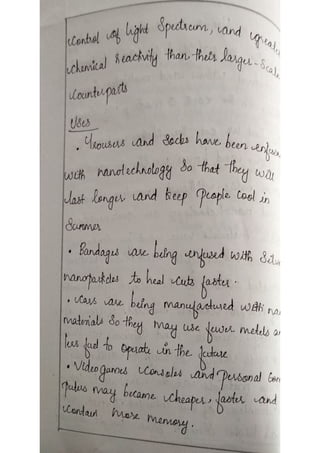 Control of light Spectrum, and greater
chemical reactivity than their larger-Scale
Counterparts
Uses
• Trousers and Socks have been
with nanotechnology So that they will
last longer and keep people cool in
Summer
• Bandages are being enfused with
nanoparticles to heal cuts faster.
• Cars are being manufactured with
materials So they may use fewer metels
less fuel to operate in the future
• Videogames consoles and personal Com
puters may become cheaper, faster and
contain more memory.